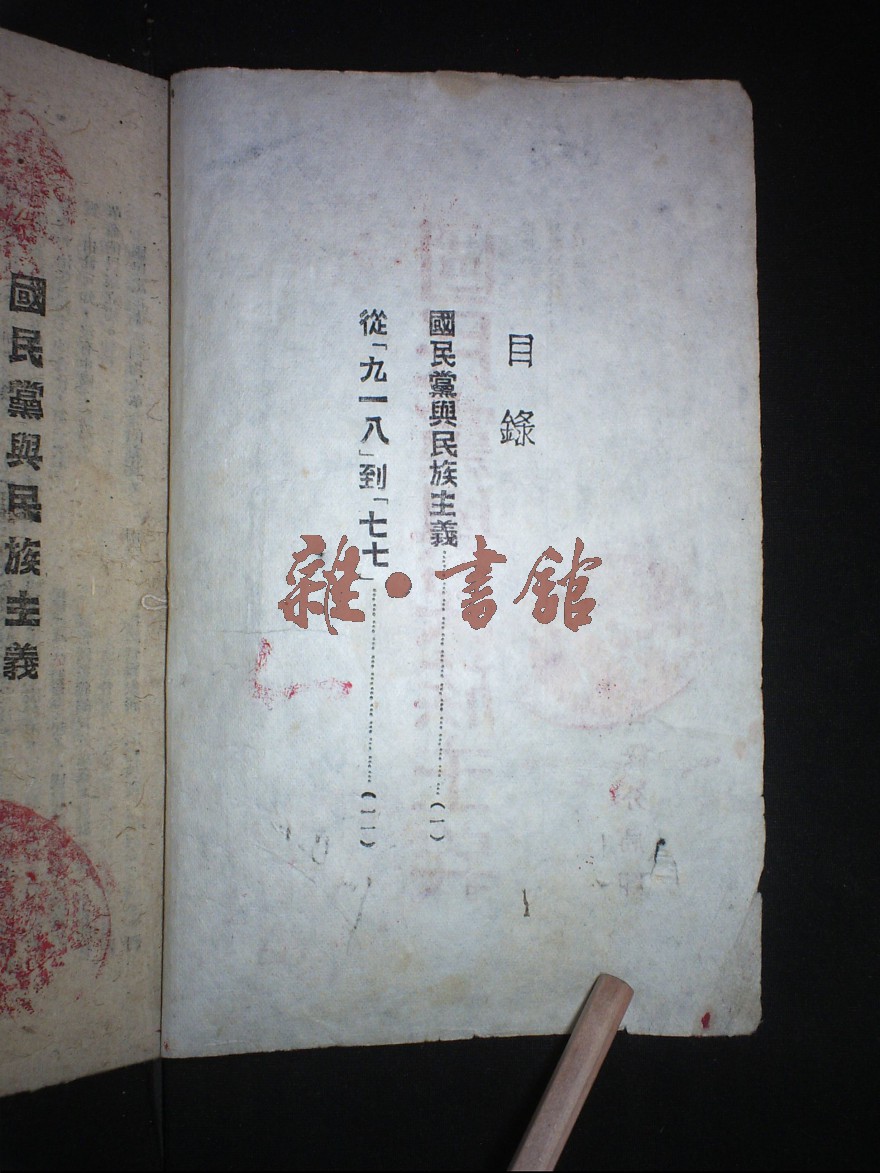 目錄
國民黨與民族主義……(一)
從「九一八」到「七七」……(一一)
國民黨與民族主義
雜·書館